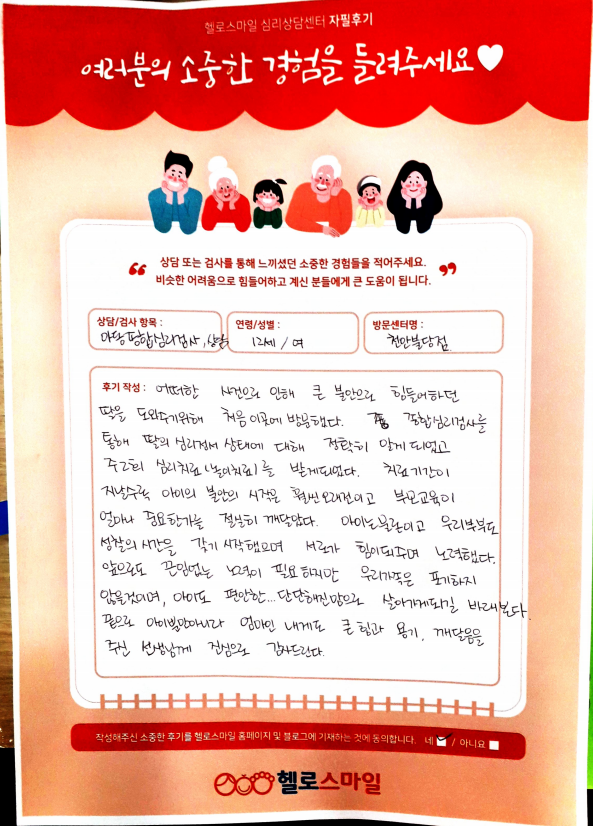 헬로스마일 심리상담센터 자필후기
여러분의 소중한 경험을 들려주세요♥
“ 상담 또는 검사를 통해 느끼셨던 소중한 경험들을 적어주세요.
비슷한 어려움으로 힘들어하고 계신 분들에게 큰 도움이 됩니다. ”
상담/검사 항목 : 연령/성별 : 방문센터명 :
마당종합심리검사, 상담 12세 / 여 천안불당점
후기 작성 : 어떠한 사건으로 인해 큰 불안으로 힘들어하던
딸을 도와주기위해 처음 이곳에 방문했다. 종합심리검사를
통해 딸의 심리정서 상태에 대해 정확히 알게 되었고
주2회 심리치료(놀이치료)를 받게되었다. 치료기간이
지날수록 아이의 불안의 시작은 훨씬 오래전이고 부모교육이
얼마나 중요한가를 절실히 깨달았다. 아이는물론이고 우리부부도
성찰의시간을 갖기 시작했으며 서로가 힘이되주며 노력했다.
앞으로도 끈임없는 노력이 필요하지만 우리가족은 포기하지
않을것이며, 아이도 편안한...단단해진맘으로 살아가게되길 바래본다.
끝으로 아이뿐만아니라 엄마인 내게도 큰 힘과 용기, 깨달음을
주신 선생님께 진심으로 감사드린다.
작성해주신 소중한 후기를 헬로스마일 홈페이지 및 블로그에 기재하는 것에 동의합니다. 네 / 아니요
헬로스마일